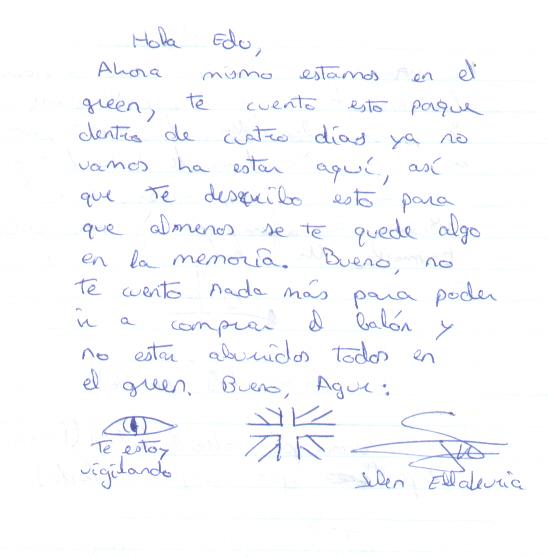 Hola Edu,
Ahora mismo estamos en el
green, te cuento esto porque
dentro de cuatro días ya no
vamos ha estar aquí, así
que te describo esto para
que almenos se te quede algo
en la memoria. Bueno, no
te cuento nada más para poder
ir a comprar el balón y
no estar aburridos todos en
el green. Bueno, Agur:
Te estoy
vigilando